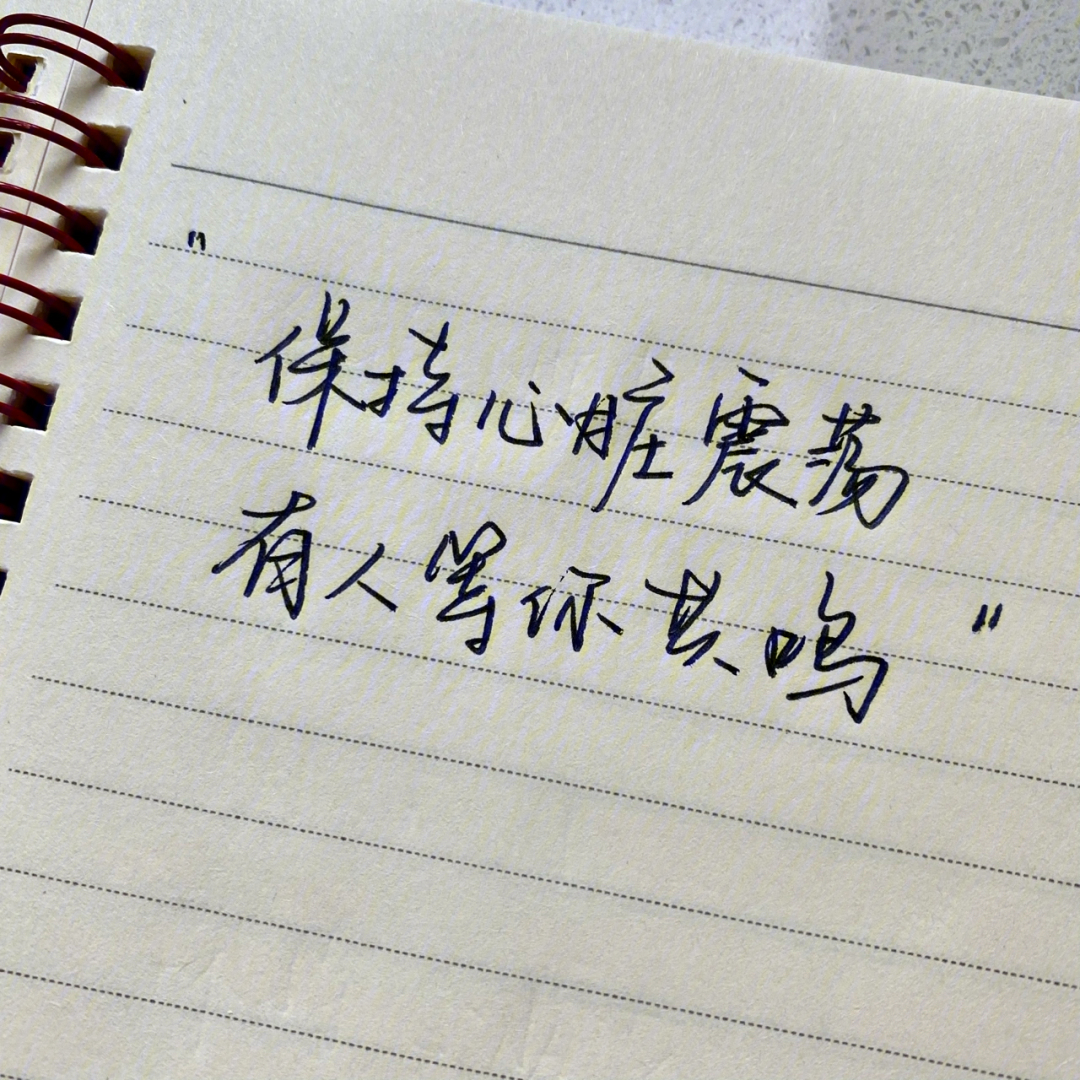 "
保持心脏震荡
有人等你共鸣"